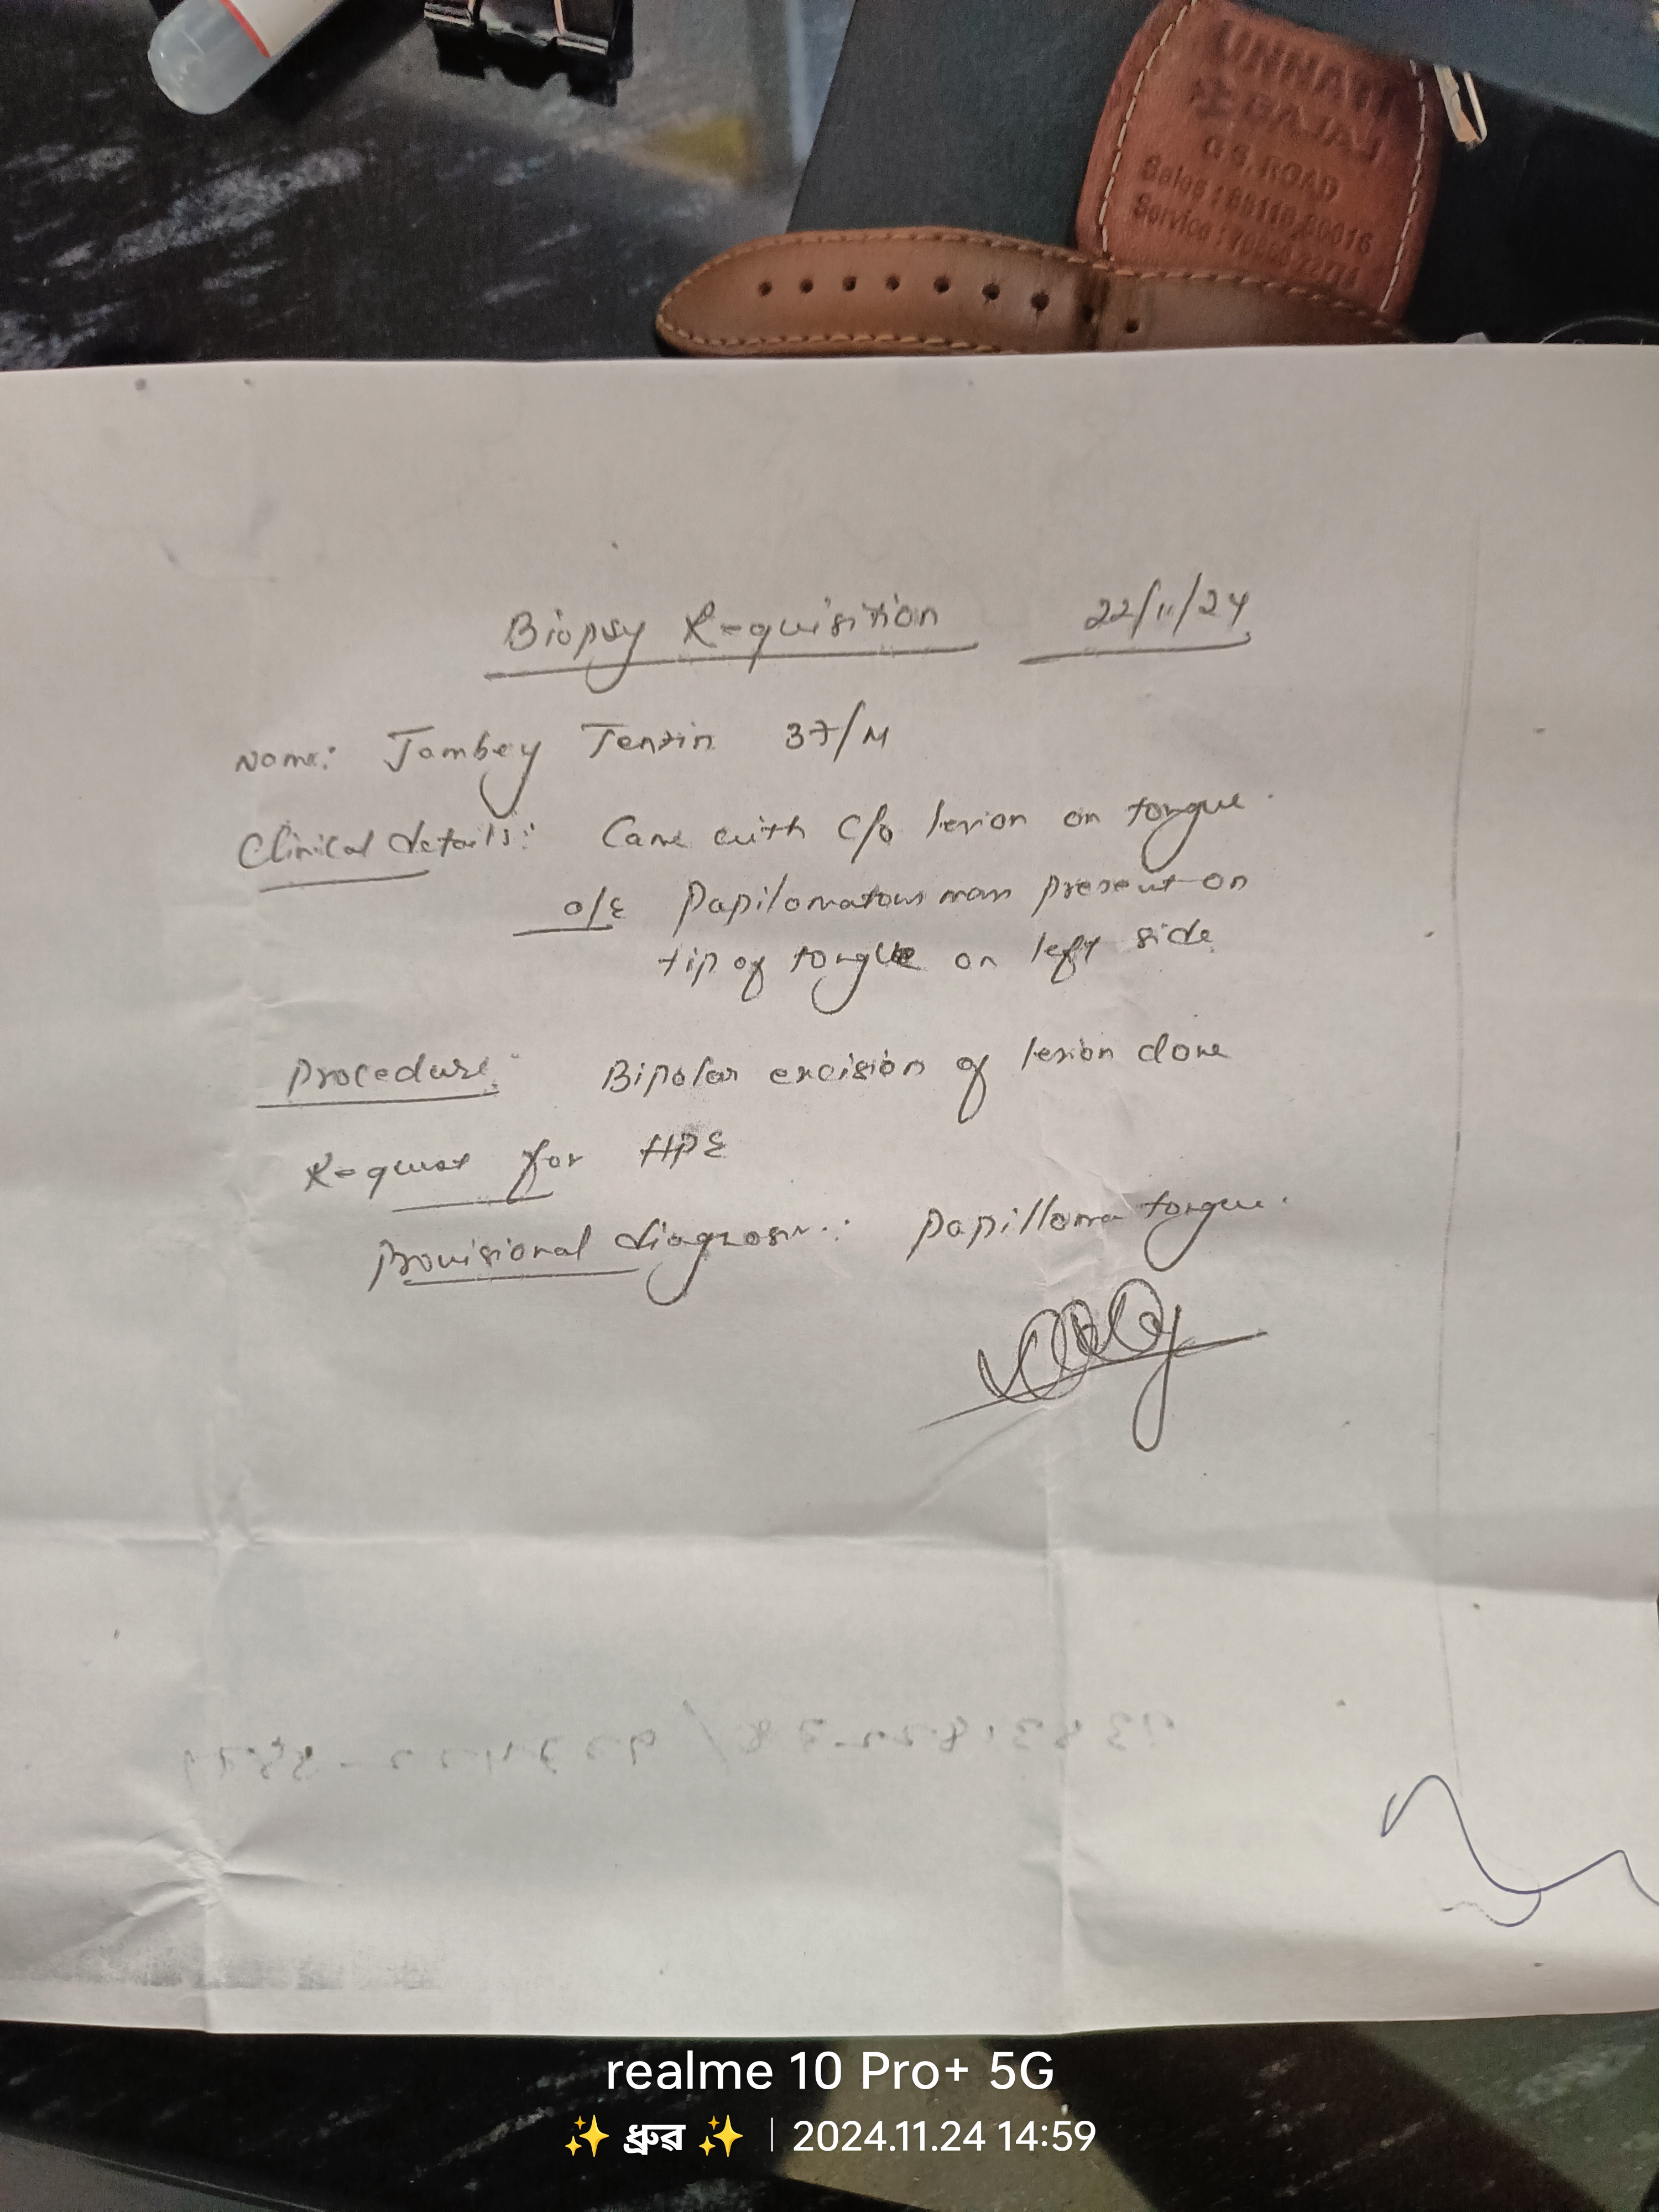 UNNATI
BAJAJ
G.S. ROAD
Sales :
Service :
Biopsy Requisition 22/11/24
Name: Jambey Tenzin 37/M
Clinical details: Came with C/o lesion on tongue.
O/E Papilomatous mass present on
tip of tongue on left side
Procedure: Bipolar excision of lesion done
Request for HPE
Provisional diagnosis: Papilloma tongue.
realme 10 Pro+ 5G
✨ ধ্রুৱ ✨ | 2024.11.24 14:59